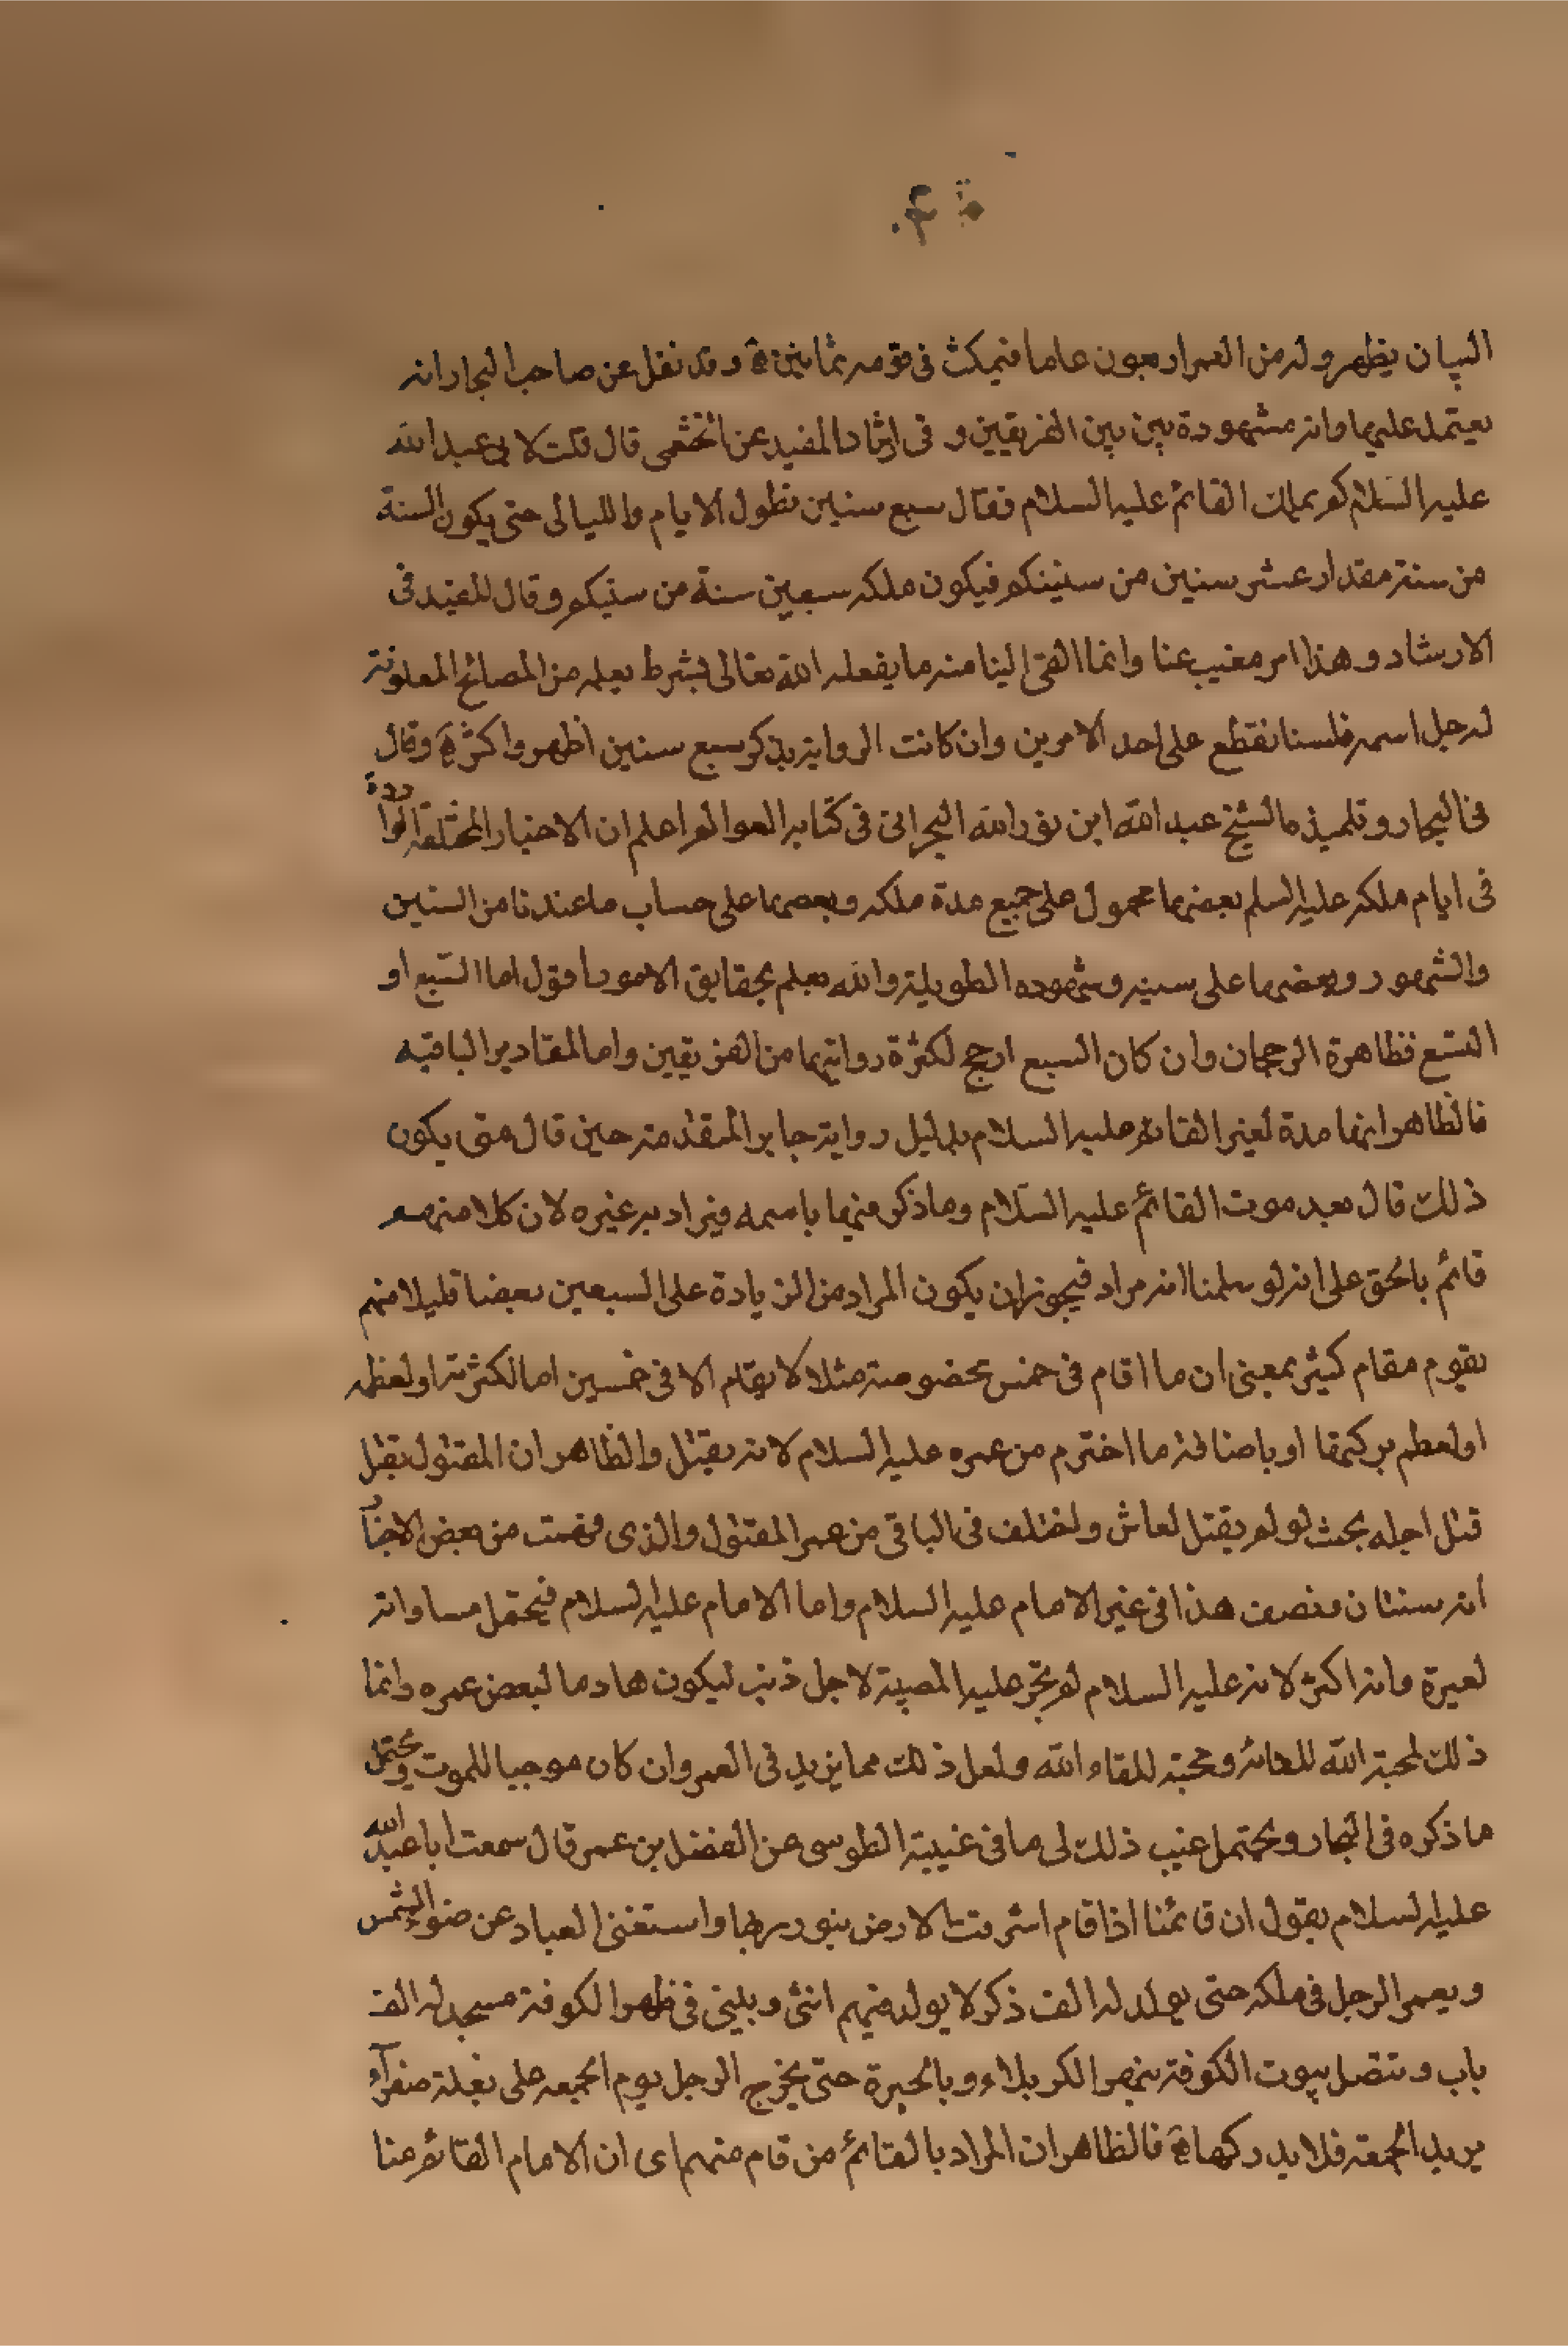 البيان يظهر وله من العمر اربعون عاما فيمكث فى قومه ثمانين ة وقد نقل عن صاحب البحار انه
يعتمد عليها وانه مشهورة بين بين الفريقين و فى ارشاد المفيد عن الخثعمى قال قلت لابى عبد الله
عليه السلام كم يملك القائم عليه السلام فقال سبع سنين تطول الايام والليالى حتى يكون السنة
من سنته مقدار عشر سنين من سنينكم فيكون ملكه سبعين سنة من سنيكم وقال المفيد فى
الارشاد و هذا امر مغيب عنا وانما القى الينا منه ما يفعله الله تعالى بشرط يعلمه من المصالح المعلومة
له جل اسمه فلسنا نقطع على احد الامرين وان كانت الرواية بذكر سبع سنين اظهر واكثر ة وقال
فى البحار و تلميذه الشيخ عبد الله ابن نور الله البحرانى فى كتابه العوالم اعلم ان الاخبار المختلفة الواردة
فى ايام ملكه عليه السلم بعضها محمول على جميع مدة ملكه وبعضها على حساب ما عندنا من السنين
والشهور وبعضها على سنيه وشهوره الطويلة والله يعلم بحقايق الامور اقول اما السبع او
التسع فظاهرة الرجحان وان كان السبع ارجح لكثرة روايتها من الفريقين واما المقادير الباقيه
فالظاهر انها مدة لغير القائم عليه السلام بدليل رواية جابر المتقدمة حين قال متى يكون
ذلك قال بعد موت القائم عليه السلام وما ذكر منها باسمه فيراد به غيره لان كلا منهم
قائم بالحق على انه لو سلمنا انه مراد فيجوز ان يكون المراد من الزيادة على السبعين بعضا قليلا منهم
يقوم مقام كثير بمعنى ان ما اقام فى خمس بخصوصه مثلا لا يقام الا فى خمسين اما لكثرته او لعظمه
او لعظم بركتها او باضافة ما اخترم من عمره عليه السلام لانه يقتل والظاهر ان المقتول يقتل
قبل اجله بحيث لو لم يقتل لعاش واختلف فى الباقى من عمر المقتول والذى فهمت من بعض الاخبار
انه سنتان ونصف هذا فى غير الامام عليه السلام واما الامام عليه السلام فيحتمل مساواته
لغيره وانه اكثر لانه عليه السلام لم تجر عليه المصيبة لاجل ذنب ليكون هادما لبعض عمره وانما
ذلك لمحبة الله للقائه ومحبته للقاء الله ولعل ذلك مما يزيد فى العمر وان كان موجبا للموت ويحتمل
ما ذكره فى البحار ويحتمل غير ذلك لى ما فى غيبة الطوسى عن المفضل بن عمر قال سمعت ابا عبد الله
عليه السلام يقول ان قائمنا اذا قام اشرقت الارض بنور ربها واستغنى العباد عن ضوء الشمس
ويعمر الرجل فى ملكه حتى يولد له الف ذكر لا يولد فيهم انثى ويبنى فى ظهر الكوفة مسجد له الف
باب وتتصل بيوت الكوفة بنهر الكربلاء وبالحيرة حتى يخرج الرجل يوم الجمعه على بغلة سفواء
يريد الجمعة فلا يدركها ة فالظاهر ان المراد بالقائم من قام منهم اى ان الامام القائم منا